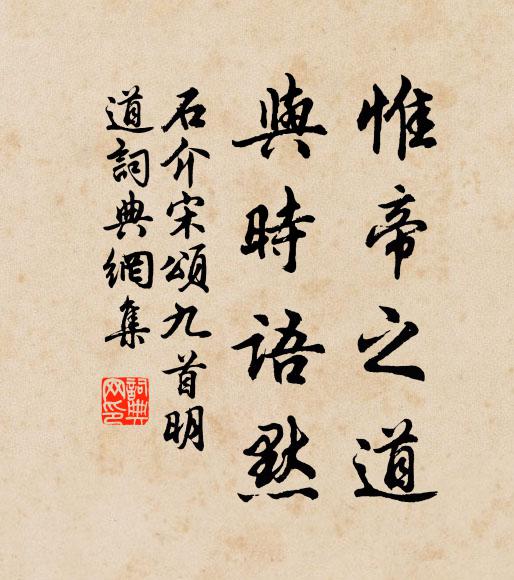 惟帝之道
與時語默
石介宋頌九首明
道詞典網集
詞典
网印